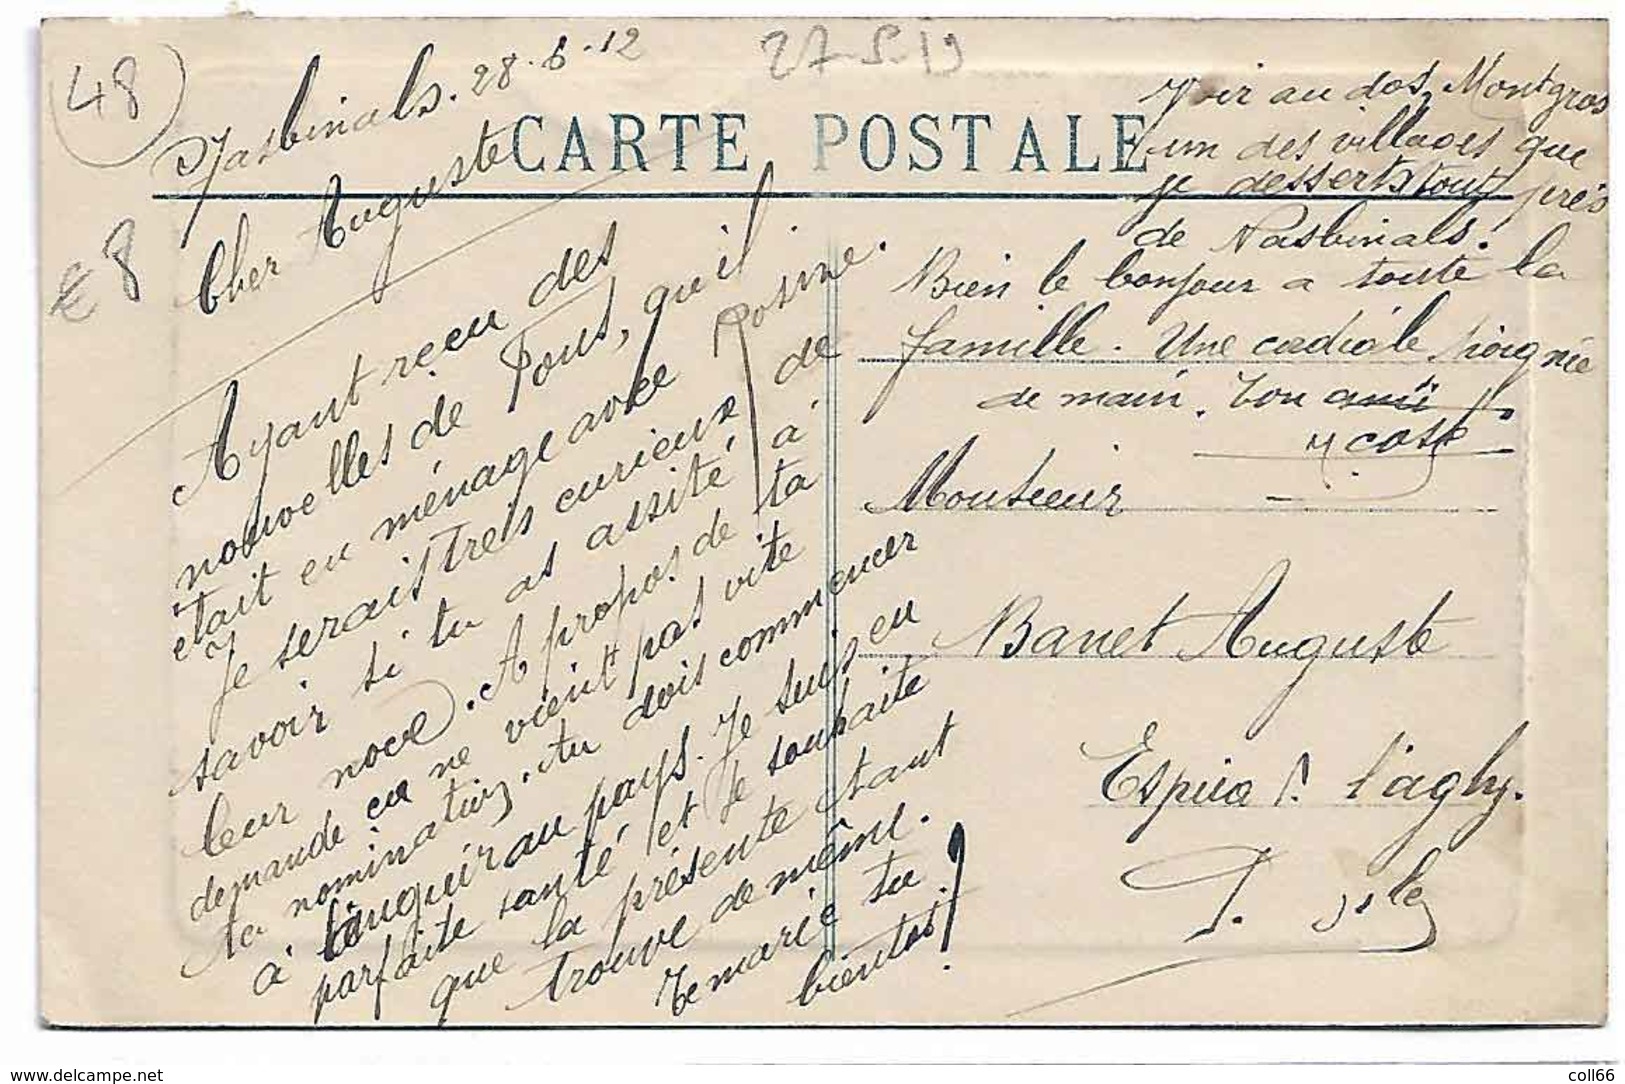 48
€ 8
27-5-19
Nasbinals. 28.6.12
CARTE POSTALE
Cher Auguste
Ayant reçu des
nouvelles de Pous, qu'il
était en ménage avec Rosine.
Je serais très curieux de
savoir si tu as assité à
leur noce. A propos de ta
demande en ne vient pas vite
ta nomination. tu dois commencer
à languir au pays. Je suis en
parfaite santé et je souhaite
que la présente tant
trouve de même.
Te marie tu
bientôt!
Voir au dos, Montgros
un des villages que
je desserts tout près
de Nasbinals.
Bien le bonjour a toute la
famille. Une cordiale poignée
de main. Ton ami
Monsieur
Banet Auguste
Espira l'agly.
delcampe.net
coll66